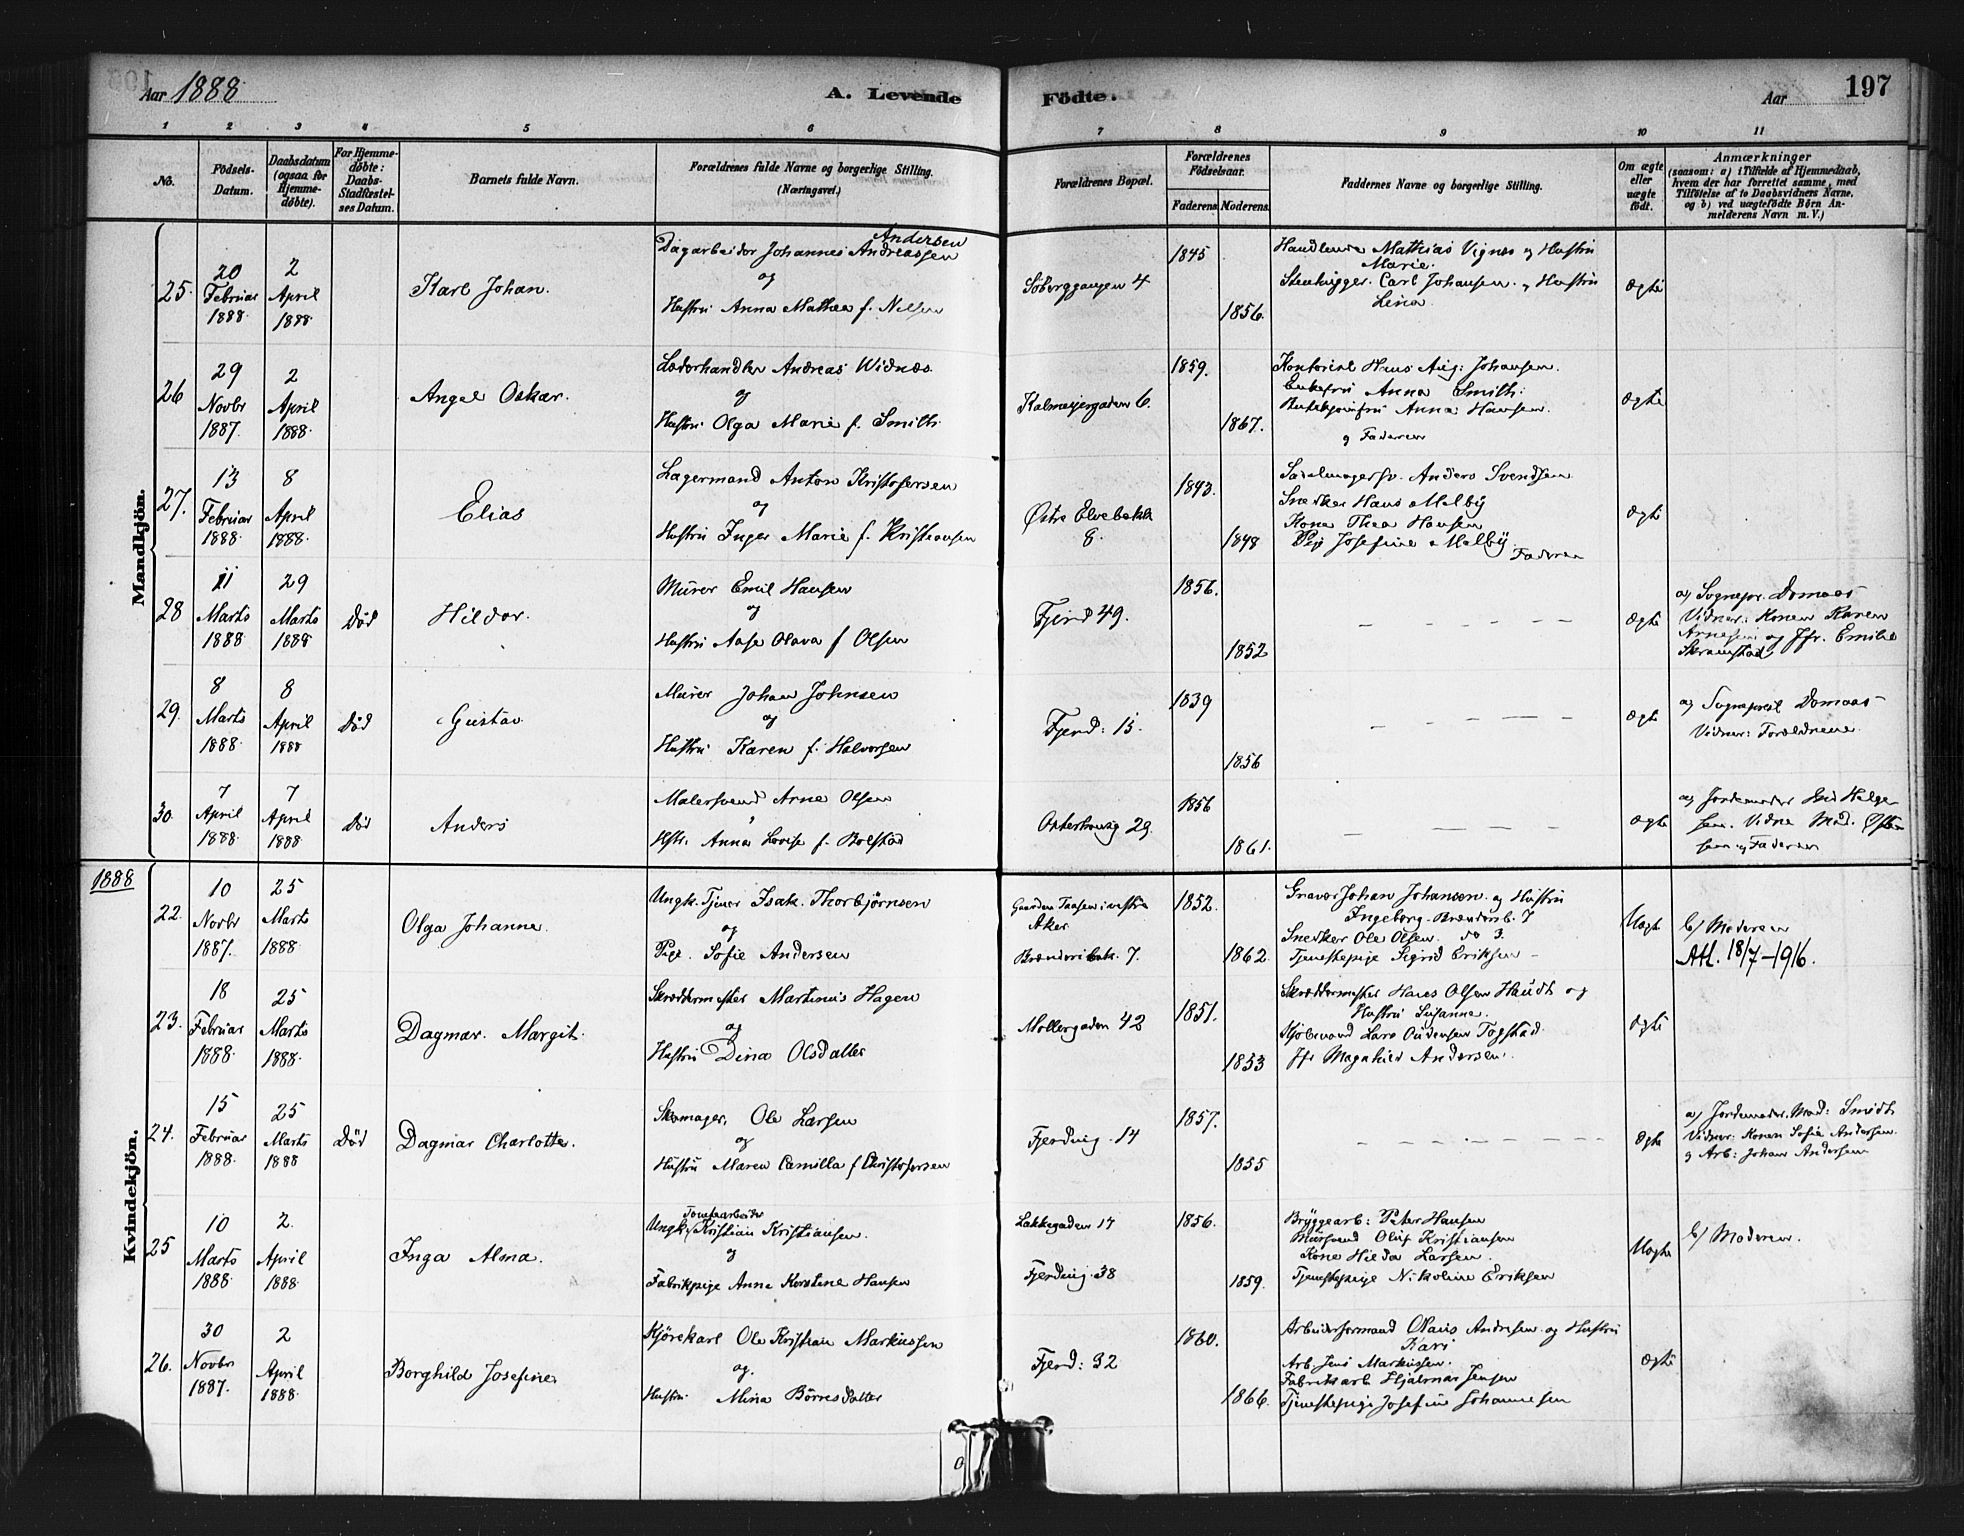 Aar 1888.
A. Levende Fødte.
Aar
197
1 2 3 4 5 6 7 8 9 10 11
No.
Fødsels-Datum.
Daabsdatum (ogsaa for Hjemme-døbte).
For Hjemme-døbte: Daabs-Stadfæstel-ses Datum.
Barnets fulde Navn.
Forældrenes fulde Navne og borgerlige Stilling. (Næringsvei.)
Forældrenes Bopæl.
Forældrenes Fødselsaar.
Faderens. Moderens.
Faddernes Navne og borgerlige Stilling.
Om ægte eller uægte født.
Anmærkninger
(saasom: a) i Tilfælde af Hjemmedaab, hvem der har forrettet samme, med Tilføielse af to Daabsvidners Navne, og b) ved uægtefødte Børn An-melderens Navn m. V.)
Mandkjön.
25. 20 Februar 1888. 2 April 1888.
Karl Johan.
Andersen
Dagarbeider Johannes Andreassen
og
Hustru Anna Mathea f. Nilsen
Söberggangen 4
1845
1856.
Handlende Mathias Vignes og Hustru
Marie.
Stenhugger. Carl Johansen. og Hustru
Lina.
Ægte
26 29 Novbr 1887. 2 April 1888.
Angel Oskar.
Læderhandler Andreas Widnæs.
og
Hustru Olga Marie f. Smith.
Kalmeyergaden 6.
1859.
1867.
Kontorist Hans Aug: Johansen.
Enkefru Anna Smith.
Anna Hansen.
og Faderen
Ægte
27. 13 Februar 1888. 8 April 1888.
Elias
Lagermand Anton Kristofersen
og
Hustru Inger Marie f. Kristiansen
Østre Elvebakke
8.
1843.
1848
Sadelmagersv. Anders Svendsen
Snedker Hans Melby
Kone Thea Hansen
Pige Josefine Melby.
Faderen
Ægte
28 11 Marts 1888 29 Marts 1888
Död
Hildor.
Murer Emil Hansen
og
Hustru Aase Olava f Olsen
Fjerd 49.
1856.
1852
Ægte
a) Sognepr. Domaas
Vidner: Konen Karen
Arnesen og Jfr. Emilie
Skramstad
29. 8 Marts 1888. 8 April 1888
Död
Gustav
Murer Johan Johnsen
og
Hustru Karen f. Halvorsen
Fjerd: 15.
1839
1856
Ægte
a) Domaas
Vidner: Forældrene.
30. 7 April 1888. 7 April 1888
Död
Anders
Malersvend Arne Olsen
Hstr. Anna Lovise f. Bolstad
29.
1856
1861.
Ægte
a) Jordemoder Helge
sen. Vidne Mad.
sen og Faderen
1888
Kvindekjön.
22. 10 Novbr 1887. 25 Marts 1888.
Olga Johanne.
Ungk. Tjener Isak. Thorbjørnsen
og
Pige. Sofie Andersen
Gaarden Taasen i vestre
Aker
Brænderibak. 7.
1852.
1862.
Graver Johan Johansen. og Hustru
Ingeborg. Brænderib. 7
Snedker Ole Olsen. do 3.
Tjenestepige Sigrid Eriksen
Uægte
b/ Moderen
Att. 18/7-1916.
23. 18 Februar 1888. 25 Marts 1888.
Dagmar. Margit.
Skræddermester Martinus Hagen
og
Hustru Dina Olsdatter
Møllergaden 42
1851.
1853
Skræddermester Hans Olsen og
Hustru Susanne.
Kjøbmand Lars Togstad.
Jfr Magnhild Andersen.
Ægte
24. 15 Februar 1888. 25 Marts 1888
Död
Dagmar Charlotte.
Skomager, Ole Larsen
og
Hustru Maren Camilla f Christofersen
Fjerding. 14
1857.
1855
Ægte
a) Jordemoder. Mad: Smidt
Vidner: Konen Sofie Andersen.
og Arb: Johan Andersen
25 10 Marts 1888. 2. April 1888.
Inga Alma.
Tomtearbeider
Ungk. Kristian Kristiansen.
og
Fabrikpige Anne Kirstine Hansen
Lakkegaden 14
Fjerding. 38
1856.
1859.
Bryggearb: Peter Hansen
Mursvend Oluf Kristiansen
Kone Hilda Larsen.
Tjenestepige Nikoline Eriksen
Uægte
b/ Moderen.
26. 30 Novbr 1887. 2 April 1888.
Borghild Josefine
Kjørekarl Ole Kristian Markussen
og.
Hustru Mina Börresdatter
Fjerd: 32
1860.
1866.
Arbeidsformand Olaus Andresen og Hustru
Kari
Arb. Jens Markussen.
Fabrikarb Hjalmar Jensen
Tjenestepige Josefine Johannesen
Ægte